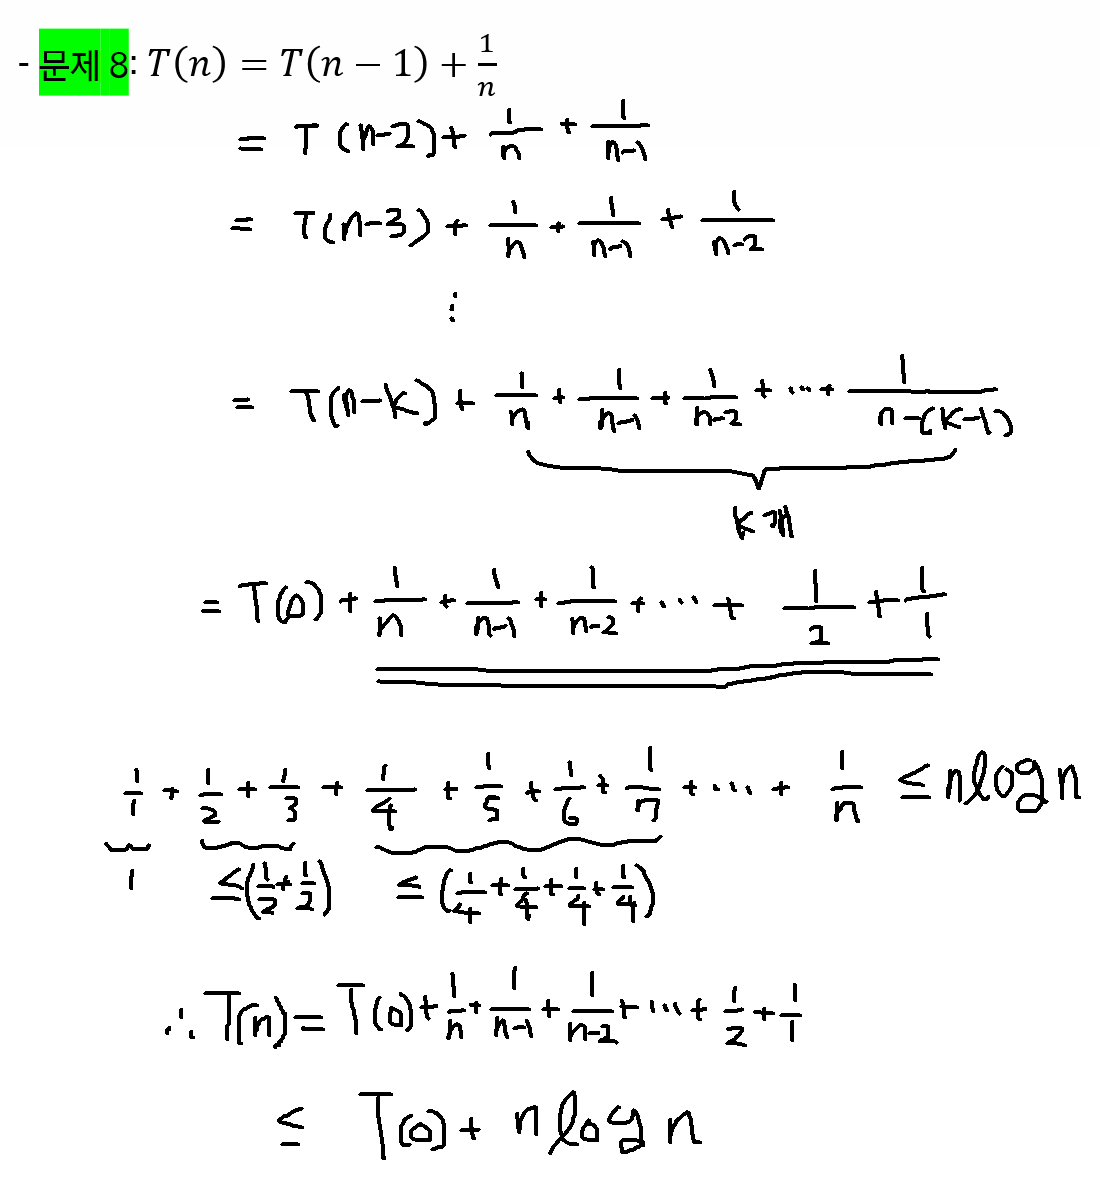 - 문제 8: T(n) = T(n − 1) + 1/n
= T(n-2) + 1/n + 1/(n-1)
= T(n-3) + 1/n + 1/(n-1) + 1/(n-2)
⋮
= T(n-k) + 1/n + 1/(n-1) + 1/(n-2) + ... + 1/(n-(k-1))
k개
= T(0) + 1/n + 1/(n-1) + 1/(n-2) + ... + 1/2 + 1/1
1/1 + 1/2 + 1/3 + 1/4 + 1/5 + 1/6 + 1/7 + ... + 1/n ≤ nlogn
1 ≤(1/2+1/2) ≤ (1/4+1/4+1/4+1/4)
∴ T(n) = T(0) + 1/n + 1/(n-1) + 1/(n-2) + ... + 1/2 + 1/1
≤ T(0) + nlogn